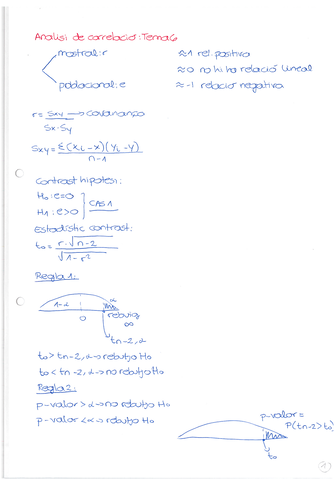 Analisi de correlació: Tema 6
mostral: r
≈1 rel. positiva
≈0 no hi ha relació lineal
poblacional: e
≈-1 relació negativa
r = Sxy → covariança
Sx·Sy
Sxy = Σ(xi-x)(yi-y)
n-1
Contrast hipòtesi:
H0: e=0
CAS 1
H1: e>0
Estadístic contrast:
t0 = r·√n-2
√1-r²
Regla 1:
1-α
α
0
rebuig
∞
tn-2,α
t0 > tn-2,α → rebutjo H0
t0 < tn-2,α → no rebutjo H0
Regla 2:
p-valor > α → no rebutjo H0
p-valor < α → rebutjo H0
p-valor =
P(tn-2>t0)
t0